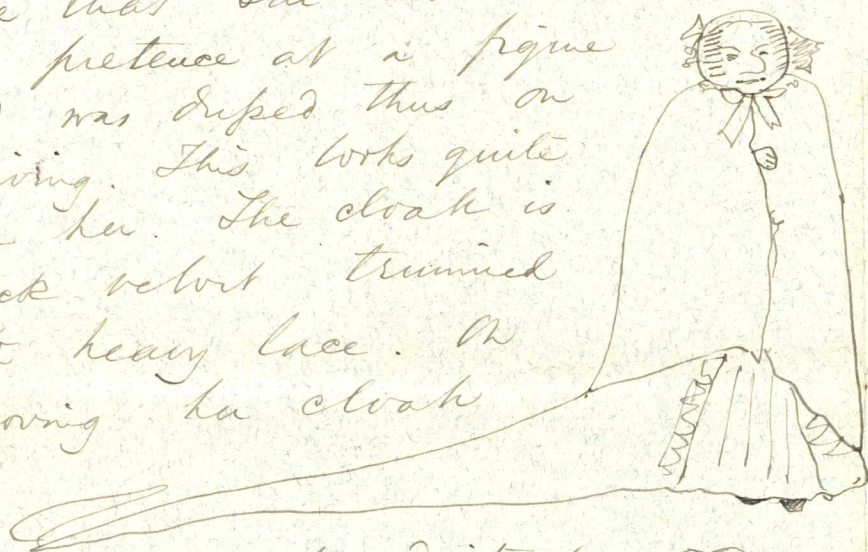 that
pretence at a figure
was dressed thus on
iving. This looks quite
her. The cloak is
ck velvet trimmed
heavy lace. On
oving her cloak